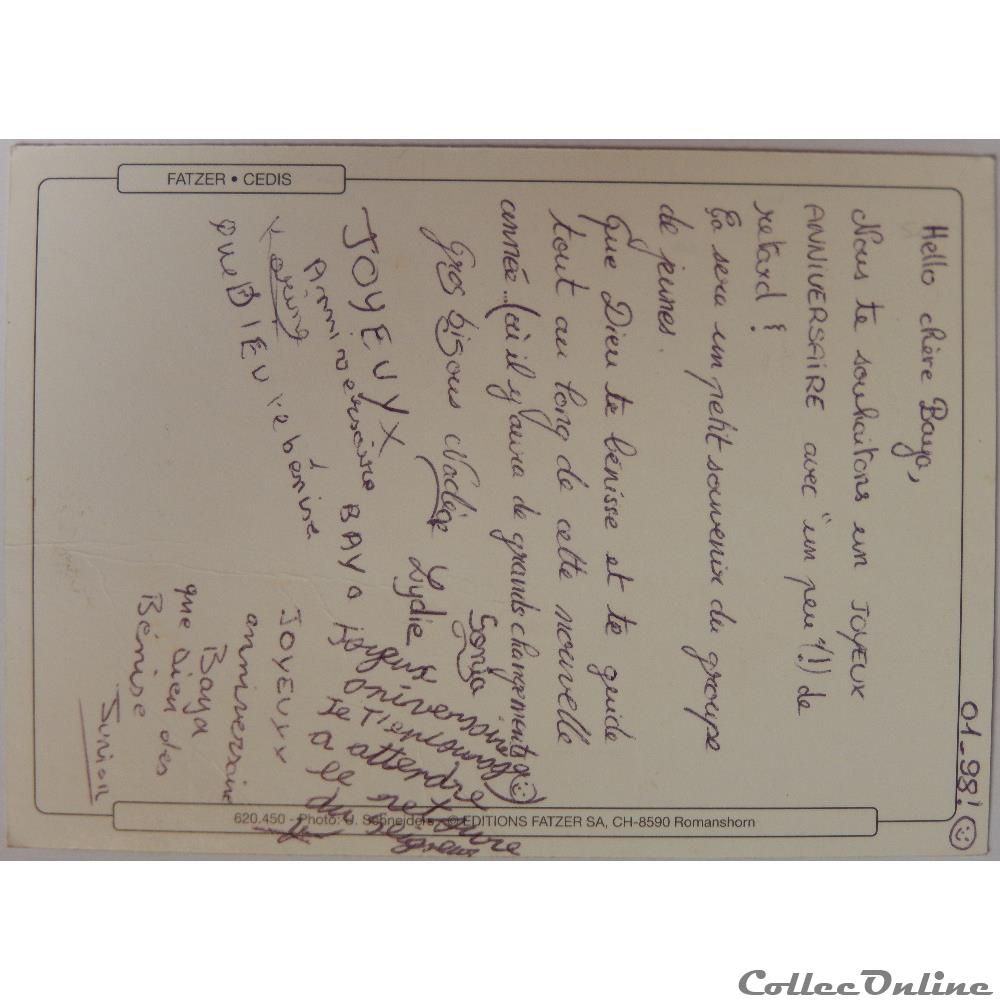 FATZER • CEDIS
01-98!
Hello chère Baya,
Nous te souhaitons un JOYEUX
ANNIVERSAIRE avec "un peu"(!) de
retard !
Ça sera un petit souvenir du groupe
de jeunes.
Que Dieu te bénisse et te guide
tout au long de cette nouvelle
année... (où il y aura de grands changements
Gros bisous Nadège Lydie Sonja
JOYEUYX
Anniversaire BAYA
que DIEU te bénisse
joyeux
aniversaire
a attendre
le retoure
du Seigneur
JOYEUXX
anniversaire
Baya
que dieu des
Bénisse
Junior
620.450 - Photo: U. Schneiders - © EDITIONS FATZER SA, CH-8590 Romanshorn
CollecOnline